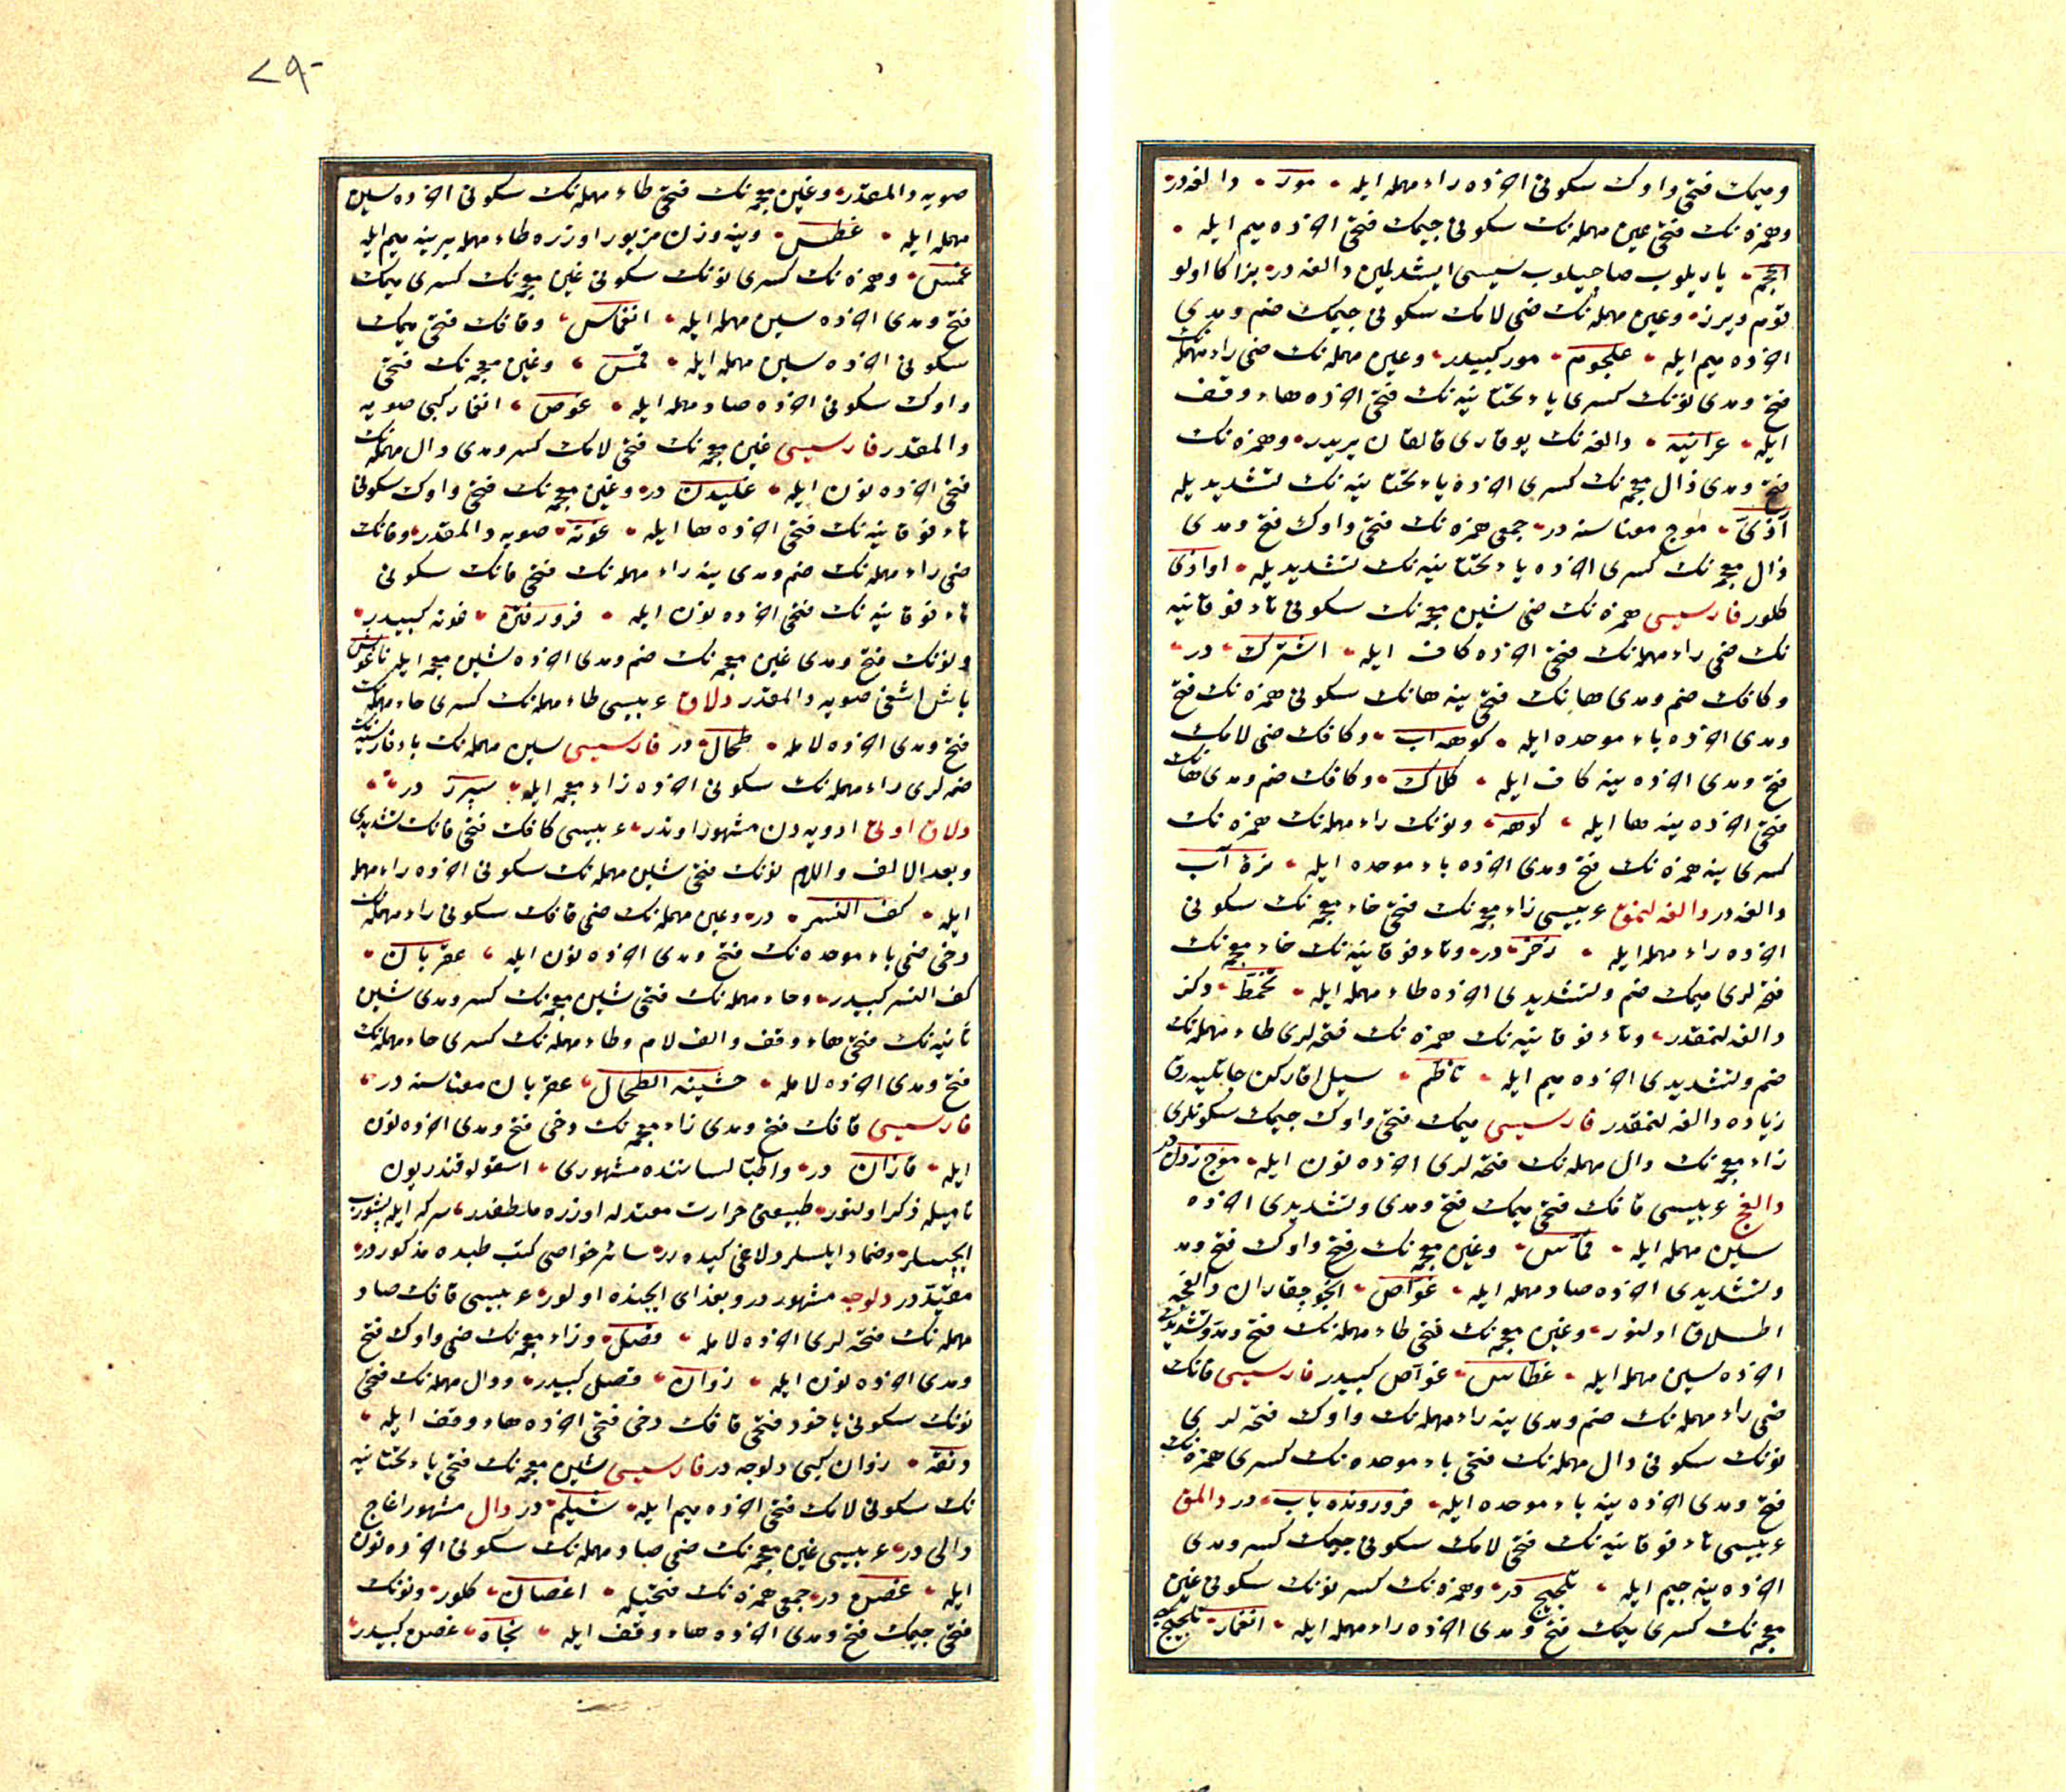 وميمك فتحى واوك سكونى اخرده راء مهمله ايله مور دالغه در
وهمزه نك فتحى عين مهمله نك سكونى جيمك فتحى اخرده ميم ايله
يوم ديرر وعين مهمله نك ضمى لامك سكونى جيمك ضم ومدى
اخرده ميم ايله علجوم مور كبيدر وعين مهمله نك ضمى راء مهمله نك
فتح ومدى نونك كسرى ياء تحتانيه نك فتحى اخرده هاء وقف
ايله عرانيه دالغه نك يوقارى قالقان يريدر وهمزه نك
فتح ومدى ذال معجمه نك كسرى اخرده ياء تحتانيه نك تشديديله
آذى موج معناسنه در جمعى همزه نك فتحى واوك فتح ومدى
ذال معجمه نك كسرى اخرده ياء تحتانيه نك تشديديله اواذى
كلور فارسيسى همزه نك ضمى شين معجمه نك سكونى تاء فوقانيه
نك ضمى راء مهمله نك فتحى اخرده كاف ايله اشترك در
وكافك ضم ومدى هانك فتحى ينه هانك سكونى همزه نك فتح
ومدى اخرده باء موحده ايله كوهه آب وكافك ضمى لامك
فتح ومدى اخرده ينه كاف ايله كلاك وكافك ضم ومدى هانك
فتحى اخرده ينه ها ايله كوهه ونونك راء مهمله نك همزه نك
كسرى ينه همزه نك فتح ومدى اخرده باء موحده ايله نره آب
دالغه در دالغه لنمق عربيسى زاء معجمه نك فتحى خاء معجمه نك سكونى
اخرده راء مهمله ايله زخر در وتاء فوقانيه نك خاء معجمه نك
فتحه لرى ميمك ضم وتشديدى اخرده طاء مهمله ايله تخمط دكز
دالغه لنمقدر وتاء فوقانيه نك همزه نك فتحه لرى طاء مهمله نك
ضم وتشديدى اخرده ميم ايله تأطم سيل اقاركن
زياده دالغه لنمقدر فارسيسى ميمك فتحى واوك جيمك سكونلرى
زاء معجمه نك دال مهمله نك فتحه لرى اخرده نون ايله موج زدن در
دالغج عربيسى قافك فتحى ميمك فتح ومدى وتشديدى اخرده
سين مهمله ايله قماس وغين معجمه نك فتحى واوك فتح ومد
وتشديدى اخرده صاد مهمله ايله غواص انجو چقاران دالغجه
اطلاق اولنور وغين معجمه نك فتحى طاء مهمله نك فتح ومد وتشديدى
اخرده سين مهمله ايله غطاس غواص كبيدر فارسيسى فانك
ضمى راء مهمله نك ضم ومدى ينه راء مهمله نك واوك فتحه لرى
نونك سكونى دال مهمله نك فتحى باء موحده نك كسرى همزه نك
فتح ومدى اخرده ينه باء موحده ايله فرورونده باب در دالمق
عربيسى تاء فوقانيه نك فتحى لامك سكونى جيمك كسر ومدى
اخرده ينه جيم ايله تلجيج در وهمزه نك كسر نونك سكونى غين
معجمه نك كسرى ميمك فتح ومدى اخرده راء مهمله ايله انغمار تلجيج
٧٩٠
صويه دالمقدر وغين معجمه نك فتحى طاء مهمله نك سكونى اخرده سين
مهمله ايله غطس وينه وزن مزبور اوزره طاء مهمله يرينه ميم ايله
غمس وهمزه نك كسرى نونك سكونى غين معجمه نك كسرى ميمك
فتح ومدى اخرده سين مهمله ايله انغماس وقافك فتحى ميمك
سكونى اخرده سين مهمله ايله قمس وغين معجمه نك فتحى
واوك سكونى اخرده صاد مهمله ايله غوص انغمار كبى صويه
دالمقدر فارسيسى غين معجمه نك فتحى لامك كسر ومدى دال مهمله نك
فتحى اخرده نون ايله غليدن در وغين معجمه نك ضمى واوك سكونى
تاء فوقانيه نك فتحى اخرده ها ايله غوته صويه دالمقدر وفانك
ضمى راء مهمله نك ضم ومدى ينه راء مهمله نك فتحى فانك سكونى
تاء فوقانيه نك فتحى اخرده نون ايله فرورفتن غوته كبيدر
ونونك فتح ومدى غين معجمه نك ضم ومدى اخرده شين معجمه ايله ناغوش
باش اشغى صويه دالمقدر دلاق عربيسى طاء مهمله نك كسرى حاء مهمله نك
فتح ومدى اخرده لامله طحال در فارسيسى سين مهمله نك باء فارسيه نك
ضمه لرى راء مهمله نك سكونى اخرده زاء معجمه ايله سپرز در
دلاق اوتى ادويه دن مشهور اوتدر عربيسى كافك فتحى فانك تشديدى
وبعد الالف واللام نونك فتحى سين مهمله نك سكونى اخرده راء مهمله
ايله كف النسر در وعين مهمله نك ضمى قافك سكونى راء مهمله نك
دخى ضمى باء موحده نك فتح ومدى اخرده نون ايله عقربان
كف النسر كبيدر وحاء مهمله نك فتحى شين معجمه نك كسر ومدى شين
ثانيه نك فتحى هاء وقف والف لام وطاء مهمله نك كسرى حاء مهمله نك
فتح ومدى اخرده لامله حشيشة الطحال عقربان معناسنه در
فارسيسى قافك فتح ومدى زاء معجمه نك دخى فتح ومدى اخرده نون
ايله قازان در واطبا لساننده مشهورى اسقولوقندريون
ناميله ذكر اولنور طبيعتى حرارت معتدله اوزره ملطفدر سركه ايله پشوروب
ايچسلر وضماد ايلسلر دلاغى كيده رر سائر خواصى كتب طبده مذكوردر
مقيددر دلوجه مشهوردر وبغداى ايچنده اولور عربيسى قافك صاد
مهمله نك فتحه لرى اخرده لامله قصل وزاء معجمه نك ضمى واوك فتح
ومدى اخرده نون ايله زوان قصل كبيدر ودال مهمله نك فتحى
نونك سكونى ياخود فتحى قافك دخى فتحى اخرده هاء وقف ايله
دنقه زوان كبى دلوجه در فارسيسى شين معجمه نك فتحى ياء تحتانيه
نك سكونى لامك فتحى اخرده ميم ايله شيلم در دال مشهور اغاج
دالى در عربيسى غين معجمه نك ضمى صاد مهمله نك سكونى اخرده نون
ايله غصن در جمعى همزه نك فتحيله اغصان كلور ونونك
فتحى جيمك فتح ومدى اخرده هاء وقف ايله نجاة غصن كبيدر